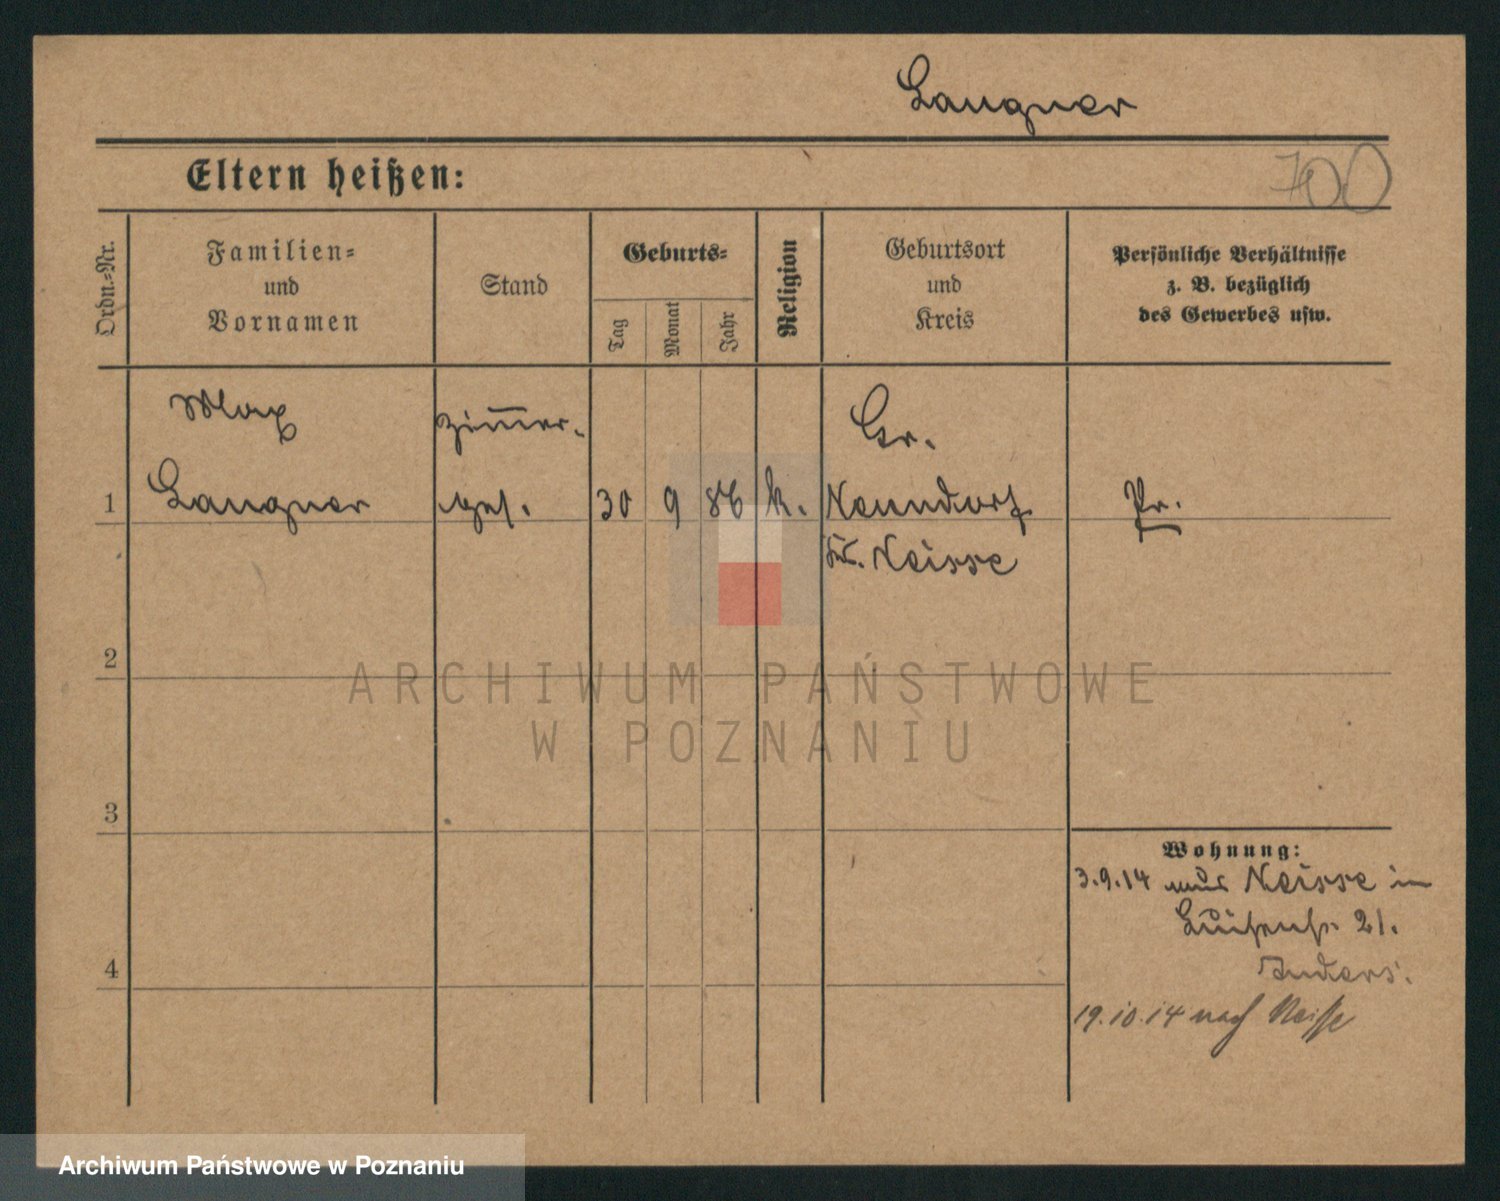 Langner
Eltern heißen:
700
Ordn.-Nr.
Familien-
und
Vornamen
Stand
Geburts-
Tag
Monat
Jahr
Religion
Geburtsort
und
Kreis
Persönliche Verhältnisse
z. B. bezüglich
des Gewerbes usw.
Max
Zimmer-
Gr.
1
Langner
ges.
30
9
86
k.
Neundorf
Pr.
Kr. Neisse
2
ARCHIWUM PAŃSTWOWE
W POZNANIU
3
Wohnung:
3.9.14 aus Neisse in
Luisenstr. 21.
Anders.
4
19.10.14 nach Neisse
Archiwum Państwowe w Poznaniu